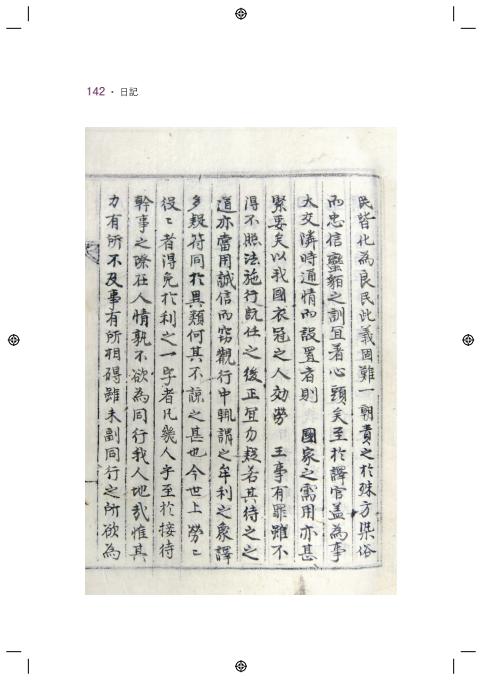 142 · 日記
民皆化為良民此義固難一朝責之於殊方染俗
而忠信蠻貊之訓宜著心頭矣至於譯官盖為事
大交隣時通情而設置者則 國家之需用亦甚
緊要矣以我國衣冠之人効勞 王事有罪雖不
得不照法施行旣任之後正宜力 若其待之之
道亦當用誠信而窃觀行中輒謂之牟利之象譯
多疑符同於異類何其不諒之甚也今世上勞〻
役〻者得免於利之一字者凡幾人乎至於接待
幹事之際在人情孰不欲為同行我人地哉惟其
力有所不及事有所相碍雖未副同行之所欲為